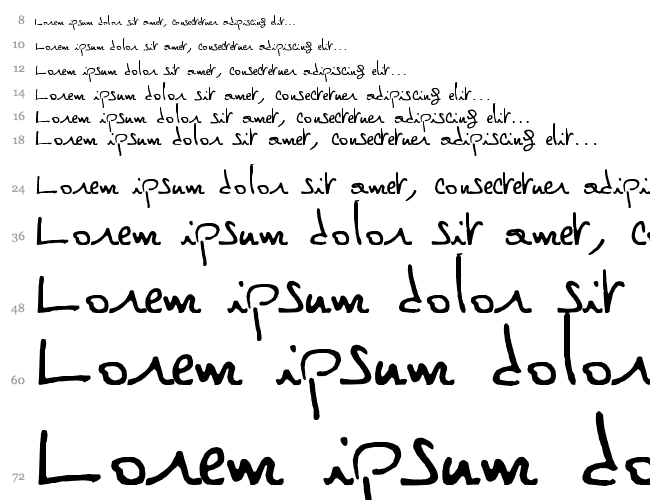 8 Lorem ipsum dolor sit amet, consectetuer adipiscing elit...
10 Lorem ipsum dolor sit amet, consectetuer adipiscing elit...
12 Lorem ipsum dolor sit amet, consectetuer adipiscing elit...
14 Lorem ipsum dolor sit amet, consectetuer adipiscing elit...
16 Lorem ipsum dolor sit amet, consectetuer adipiscing elit...
18 Lorem ipsum dolor sit amet, consectetuer adipiscing elit...
24 Lorem ipsum dolor sit amet, consectetuer adipi
36 Lorem ipsum dolor sit amet, c
48 Lorem ipsum dolor sit
60 Lorem ipsum dolor
72 Lorem ipsum do